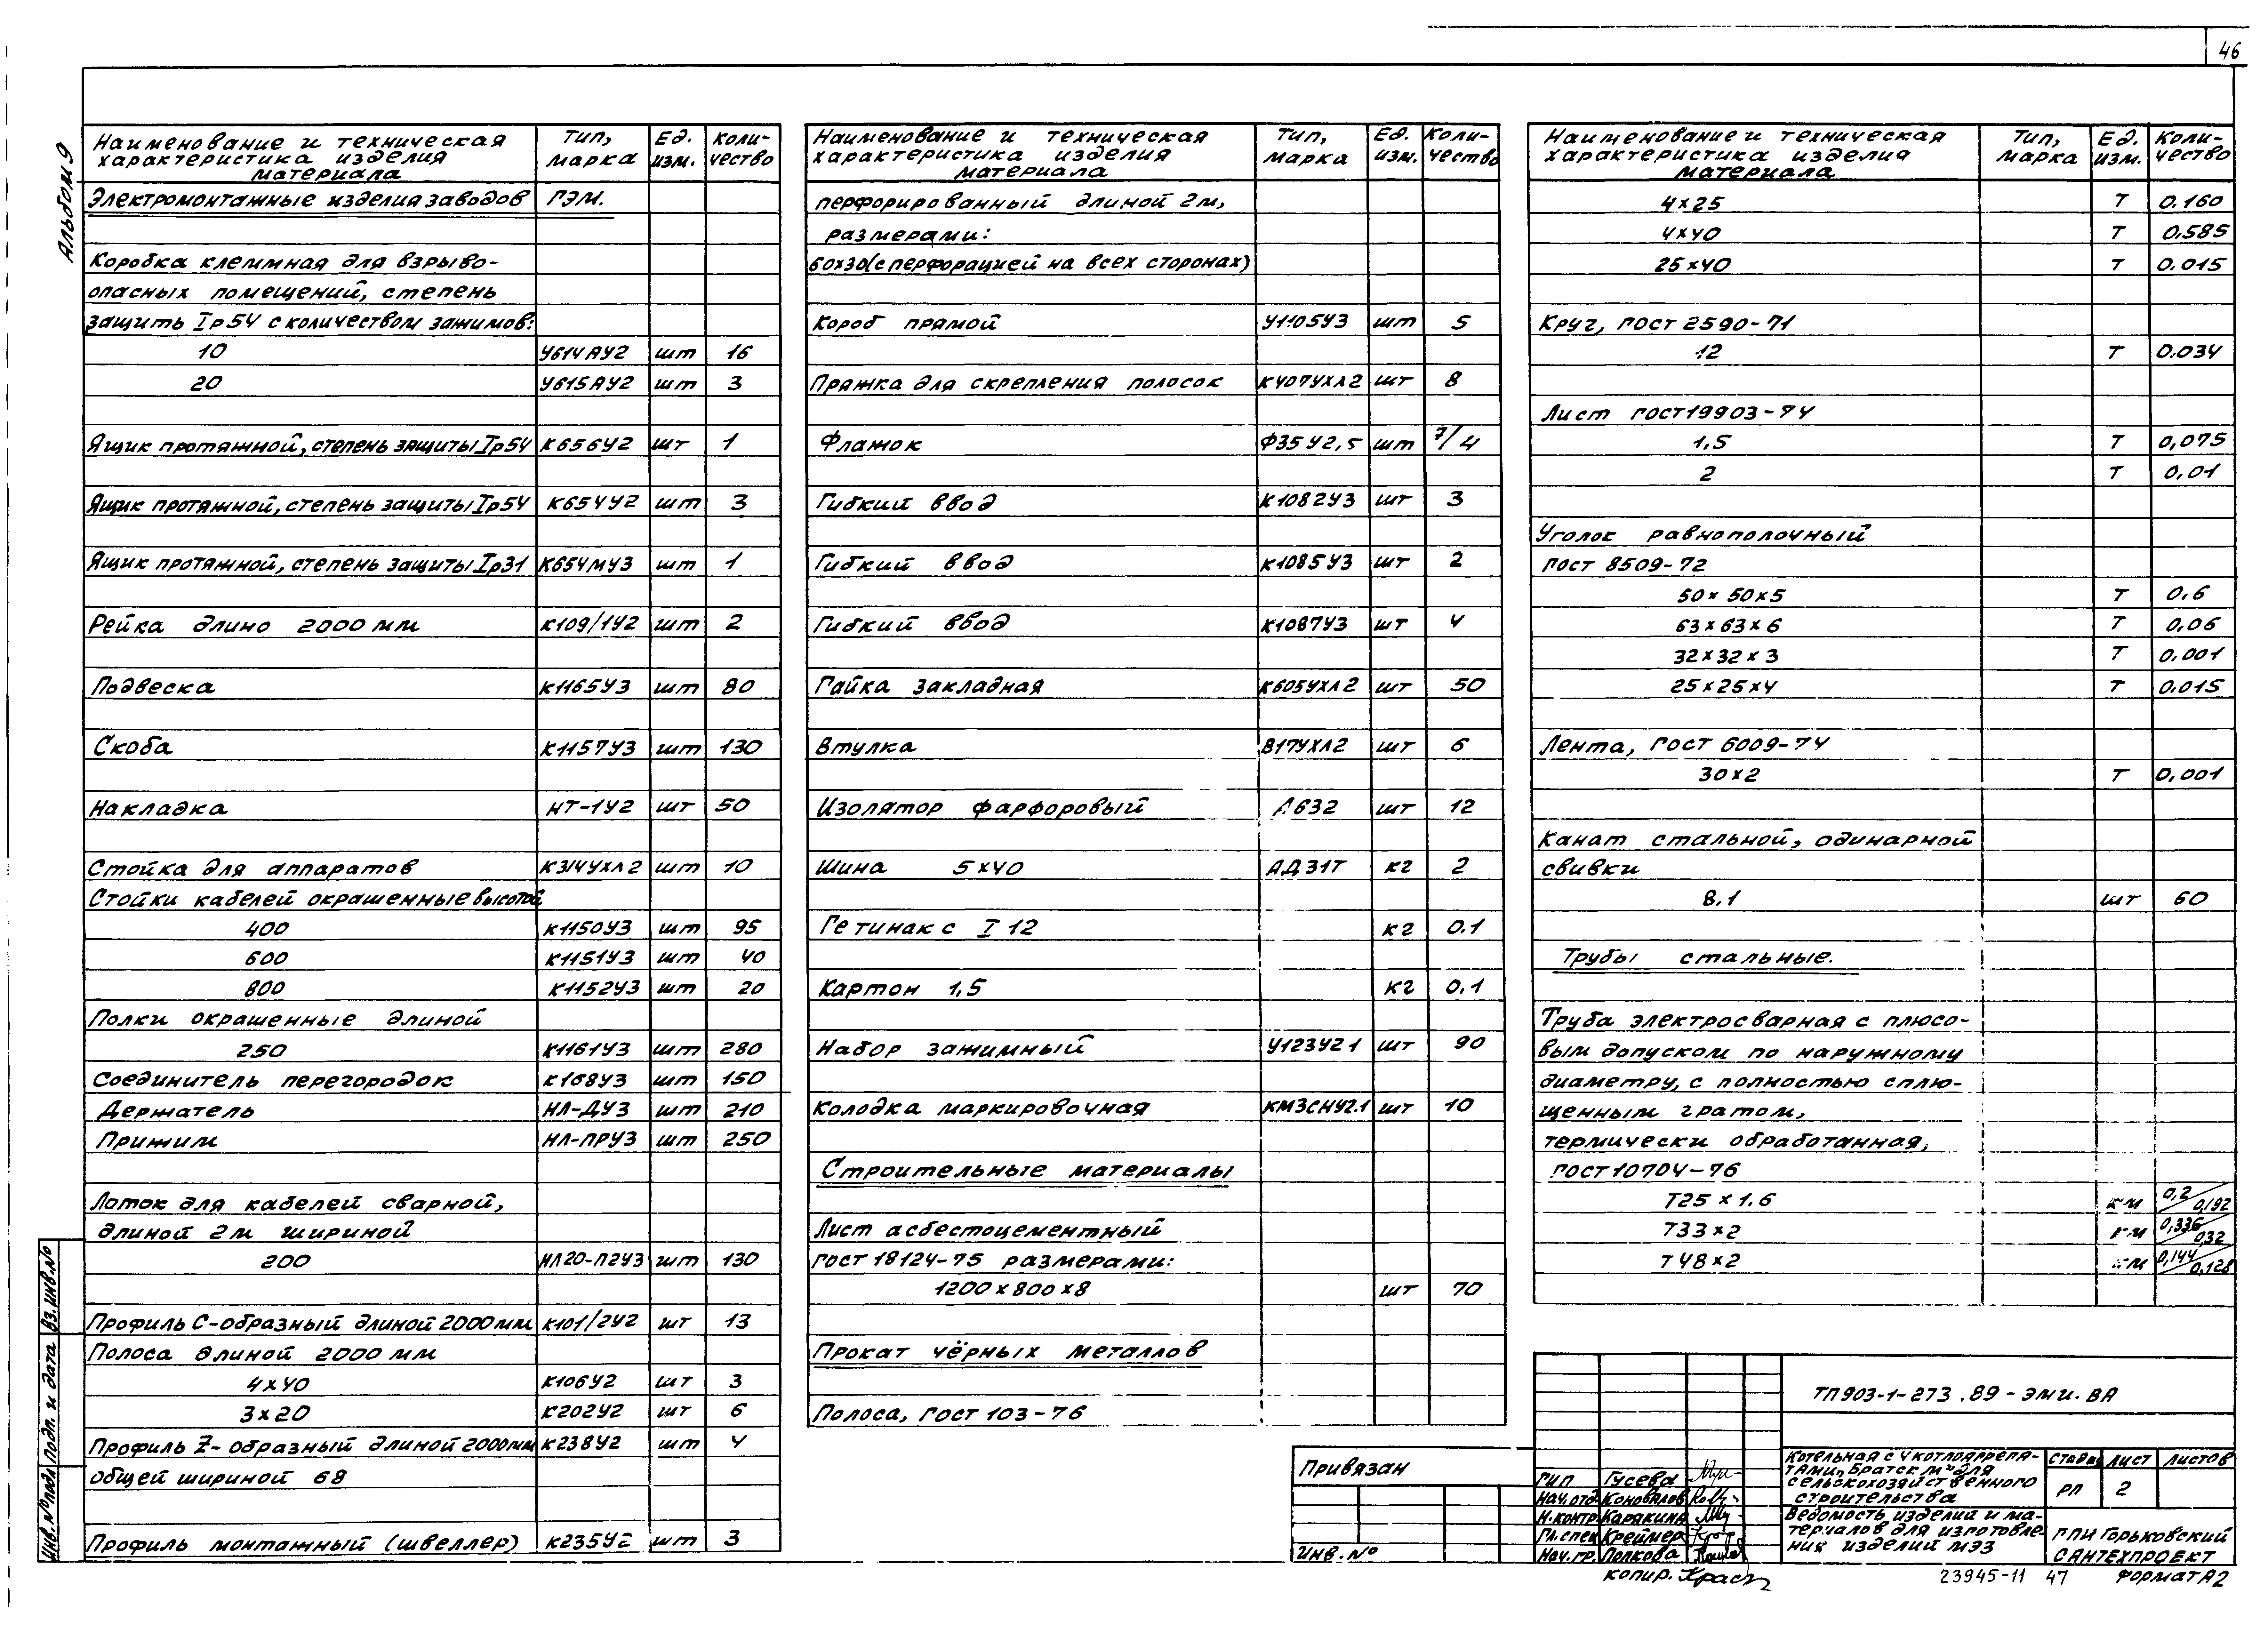 46
Альбом 9
Наименование и техническая характеристика изделия материала | Тип, марка | Ед. изм. | Количество
Электромонтажные изделия заводов ГЭМ.
Коробка клеммная для взрыво-
опасных помещений, степень
защить Iр54 с количеством зажимов:
10 У614АУ2 шт 16
20 У615АУ2 шт 3
Ящик протяжной, степень защиты Iр54 К656У2 шт 1
Ящик протяжной, степень защиты Iр54 К654У2 шт 3
Ящик протяжной, степень защиты Iр31 К654МУ3 шт 1
Рейка длино 2000 мм К109/1У2 шт 2
Подвеска К1165У3 шт 80
Скоба К1157У3 шт 130
Накладка НТ-1У2 шт 50
Стойка для аппаратов К314УХЛ2 шт 10
Стойки кабелей окрашенные высотой
400 К1150У3 шт 95
600 К1151У3 шт 40
800 К1152У3 шт 20
Полки окрашенные длиной
250 К1161У3 шт 280
Соединитель перегородок К168У3 шт 150
Держатель НЛ-ДУ3 шт 210
Прижим НЛ-ПРУ3 шт 250
Лоток для кабелей сварной,
длиной 2м шириной
200 НЛ20-П2У3 шт 130
Профиль С-образный длиной 2000 мм К101/2У2 шт 13
Полоса длиной 2000 мм
4х40 К106У2 шт 3
3х20 К202У2 шт 6
Профиль Z-образный длиной 2000мм К238У2 шт 4
общей шириной 68
Профиль монтажный (швеллер) К235У2 шт 3
Наименование и техническая характеристика изделия материала | Тип, марка | Ед. изм. | Количество
перфорированный длиной 2м,
размерами:
60х30(с перфорацией на всех сторонах)
Короб прямой У1105У3 шт 5
Пряжка для скрепления полосок К407УХЛ2 шт 8
Флажок Ф35У2,5 шт 7/4
Гибкий ввод К1082У3 шт 3
Гибкий ввод К1085У3 шт 2
Гибкий ввод К1087У3 шт 4
Гайка закладная К605УХЛ2 шт 50
Втулка В17УХЛ2 шт 6
Изолятор фарфоровый А632 шт 12
Шина 5х40 АД31Т кг 2
Гетинакс I 12 кг 0.1
Картон 1,5 кг 0.1
Набор зажимный У123У2 1 шт 90
Колодка маркировочная КМ3СНУ2.1 шт 10
Строительные материалы
Лист асбестоцементный
ГОСТ 18124-75 размерами:
1200х800х8 шт 70
Прокат чёрных металлов
Полоса, ГОСТ 103-76
Наименование и техническая характеристика изделия материала | Тип, марка | Ед. изм. | Количество
4х25 т 0.160
4х40 т 0.585
25х40 т 0.015
Круг, ГОСТ 2590-71
12 т 0.034
Лист ГОСТ19903-74
1,5 т 0,075
2 т 0,01
Уголок равнополочный
ГОСТ 8509-72
50х50х5 т 0.6
63х63х6 т 0.06
32х32х3 т 0.001
25х25х4 т 0.015
Лента, ГОСТ 6009-74
30х2 т 0,001
Канат стальной, одинарной
свивки
8.1 шт 60
Трубы стальные.
Труба электросварная с плюсо-
вым допуском по наружному
диаметру, с полностью сплю-
щенным гратом,
термически обработанная,
ГОСТ10704-76
Т25х1.6 км 0,2/0,192
Т33х2 км 0,336/0,32
Т48х2 км 0,144/0,128
Привязан
Инв.№
ГИП Гусева
Нач.отд Коновалов
Н.контр. Карякина
Гл.спец Креймер
Нач.гр. Полкова
ТП903-1-273.89-ЭМИ.ВА
Котельная с 4 котлоагрега-
тами „Братск М" для
сельскохозяйственного
строительства
Стадия Лист Листов
РП 2
Ведомость изделий и ма-
териалов для изготовле-
ния изделий МЭЗ
ГПИ Горьковский
САНТЕХПРОЕКТ
копир.
23945-11 47
Формат А2
Инв.№подл Подп. и дата Вз.инв.№